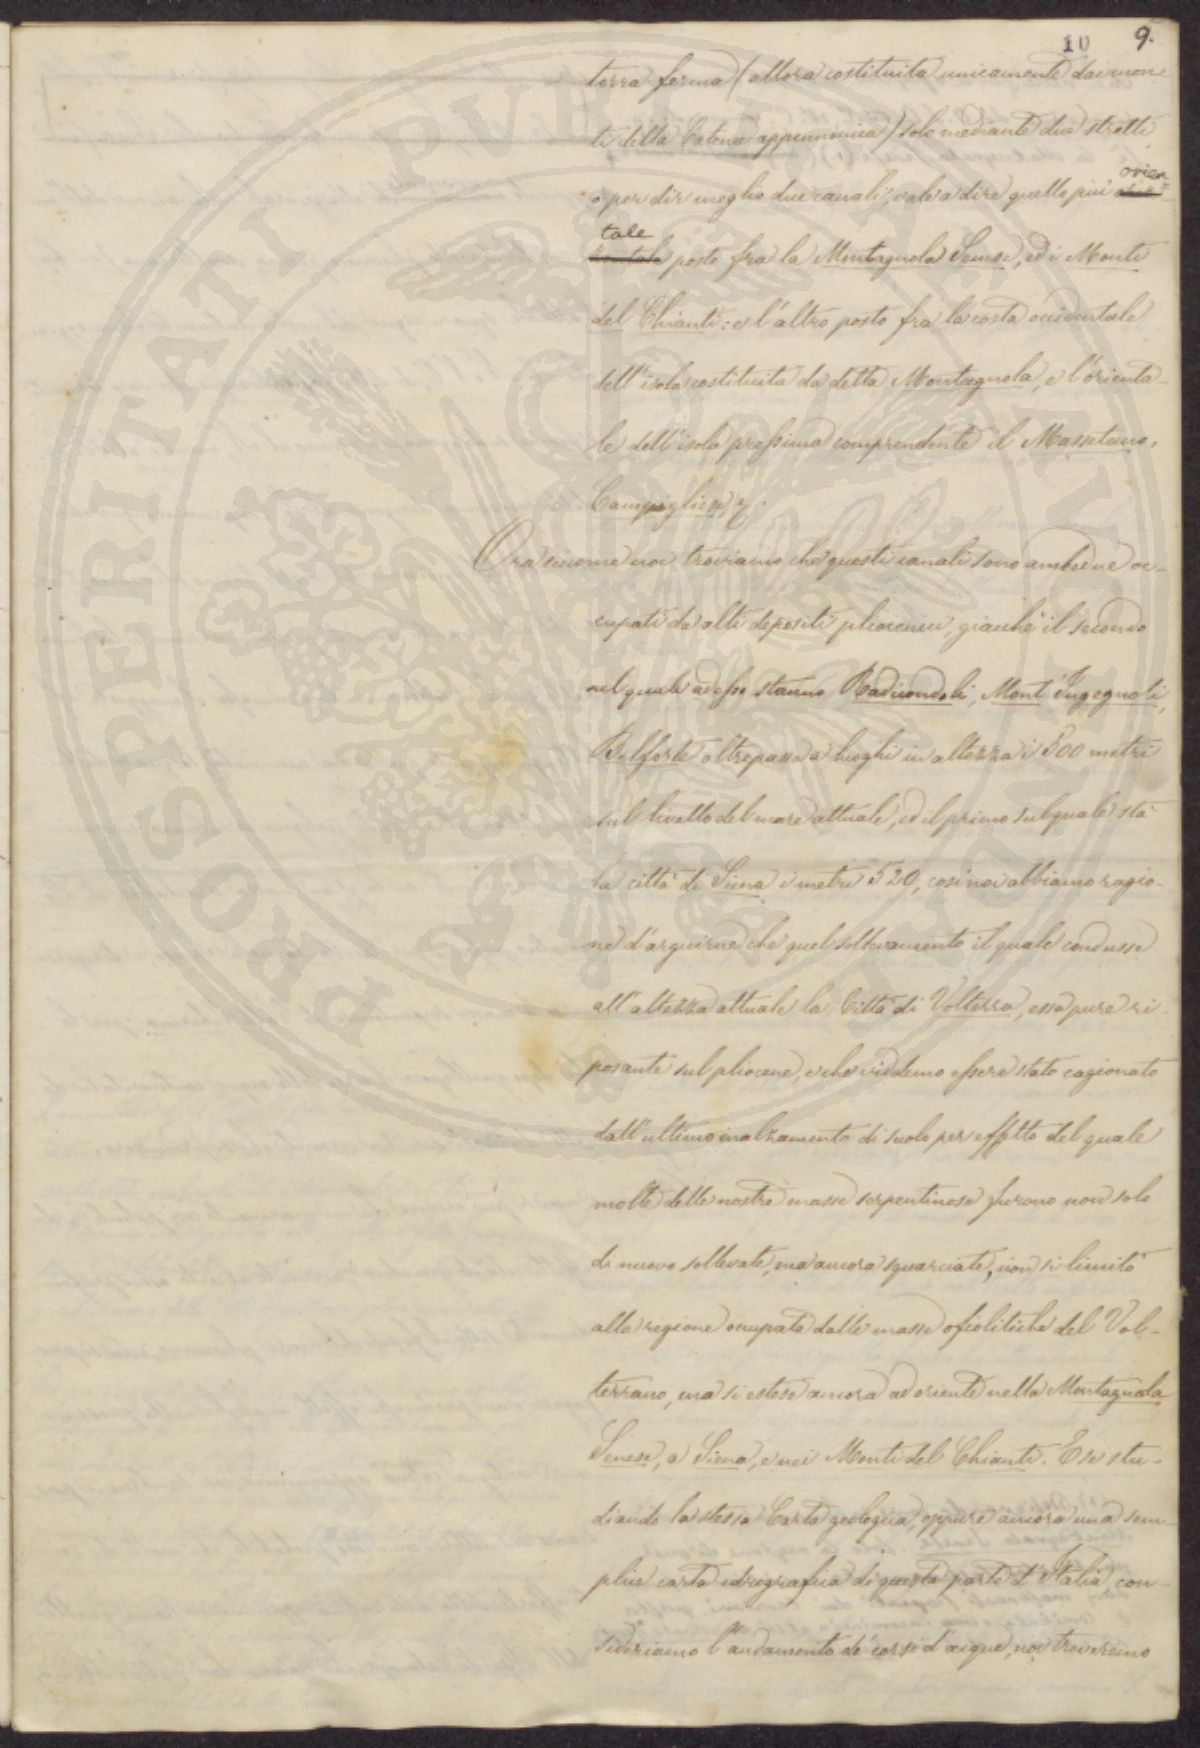 10 9.
terra ferma (allora costituita unicamente dai mon-
ti della Catena appenninica) solo mediante due stretti
o per dir meglio due canali; vale a dire quello più orien=
tale posto fra la Montagnola Senese, ed i Monti
del Chianti: e l'altro posto fra la costa occidentale
dell'isola costituita da detta Montagnola, e l'orienta-
le dell'isola prossima comprendente il Massetano,
Campigliese,
Ora siccome noi troviamo che questi canali sono ambedue oc-
cupati da alti depositi pliocenici, giacchè il secondo
nel quale adesso stanno Radicondoli, Mont'Ingegnoli,
Belforte oltrepassa a luoghi in altezza i 500 metri
sul livello del mare attuale, ed il primo sul quale stà
la città di Siena i metri 520, così noi abbiamo ragio-
ne d'arguirne che quel sollevamento il quale condusse
all'altezza attuale la Città di Volterra, essa pure ri-
posante sul pliocene, e che vedemmo essere stato cagionato
dall'ultimo inalzamento di suolo per effetto del quale
molte delle nostre masse serpentinose furono non solo
di nuovo sollevate, ma ancora squarciate, non si limitò
alla regione occupata dalle masse ofiolitiche del Vol-
terrano, ma si estese ancora ad oriente nella Montagnola
Senese, a Siena, e nei Monti del Chianti. E se stu-
diando la stessa Carta geologica, oppure ancora una sem-
plice carta idrografica di questa parte d'Italia, con-
sideriamo l'andamento de' corsi d'acque, noi troveremo
PROSPERITATI PVBLICAE